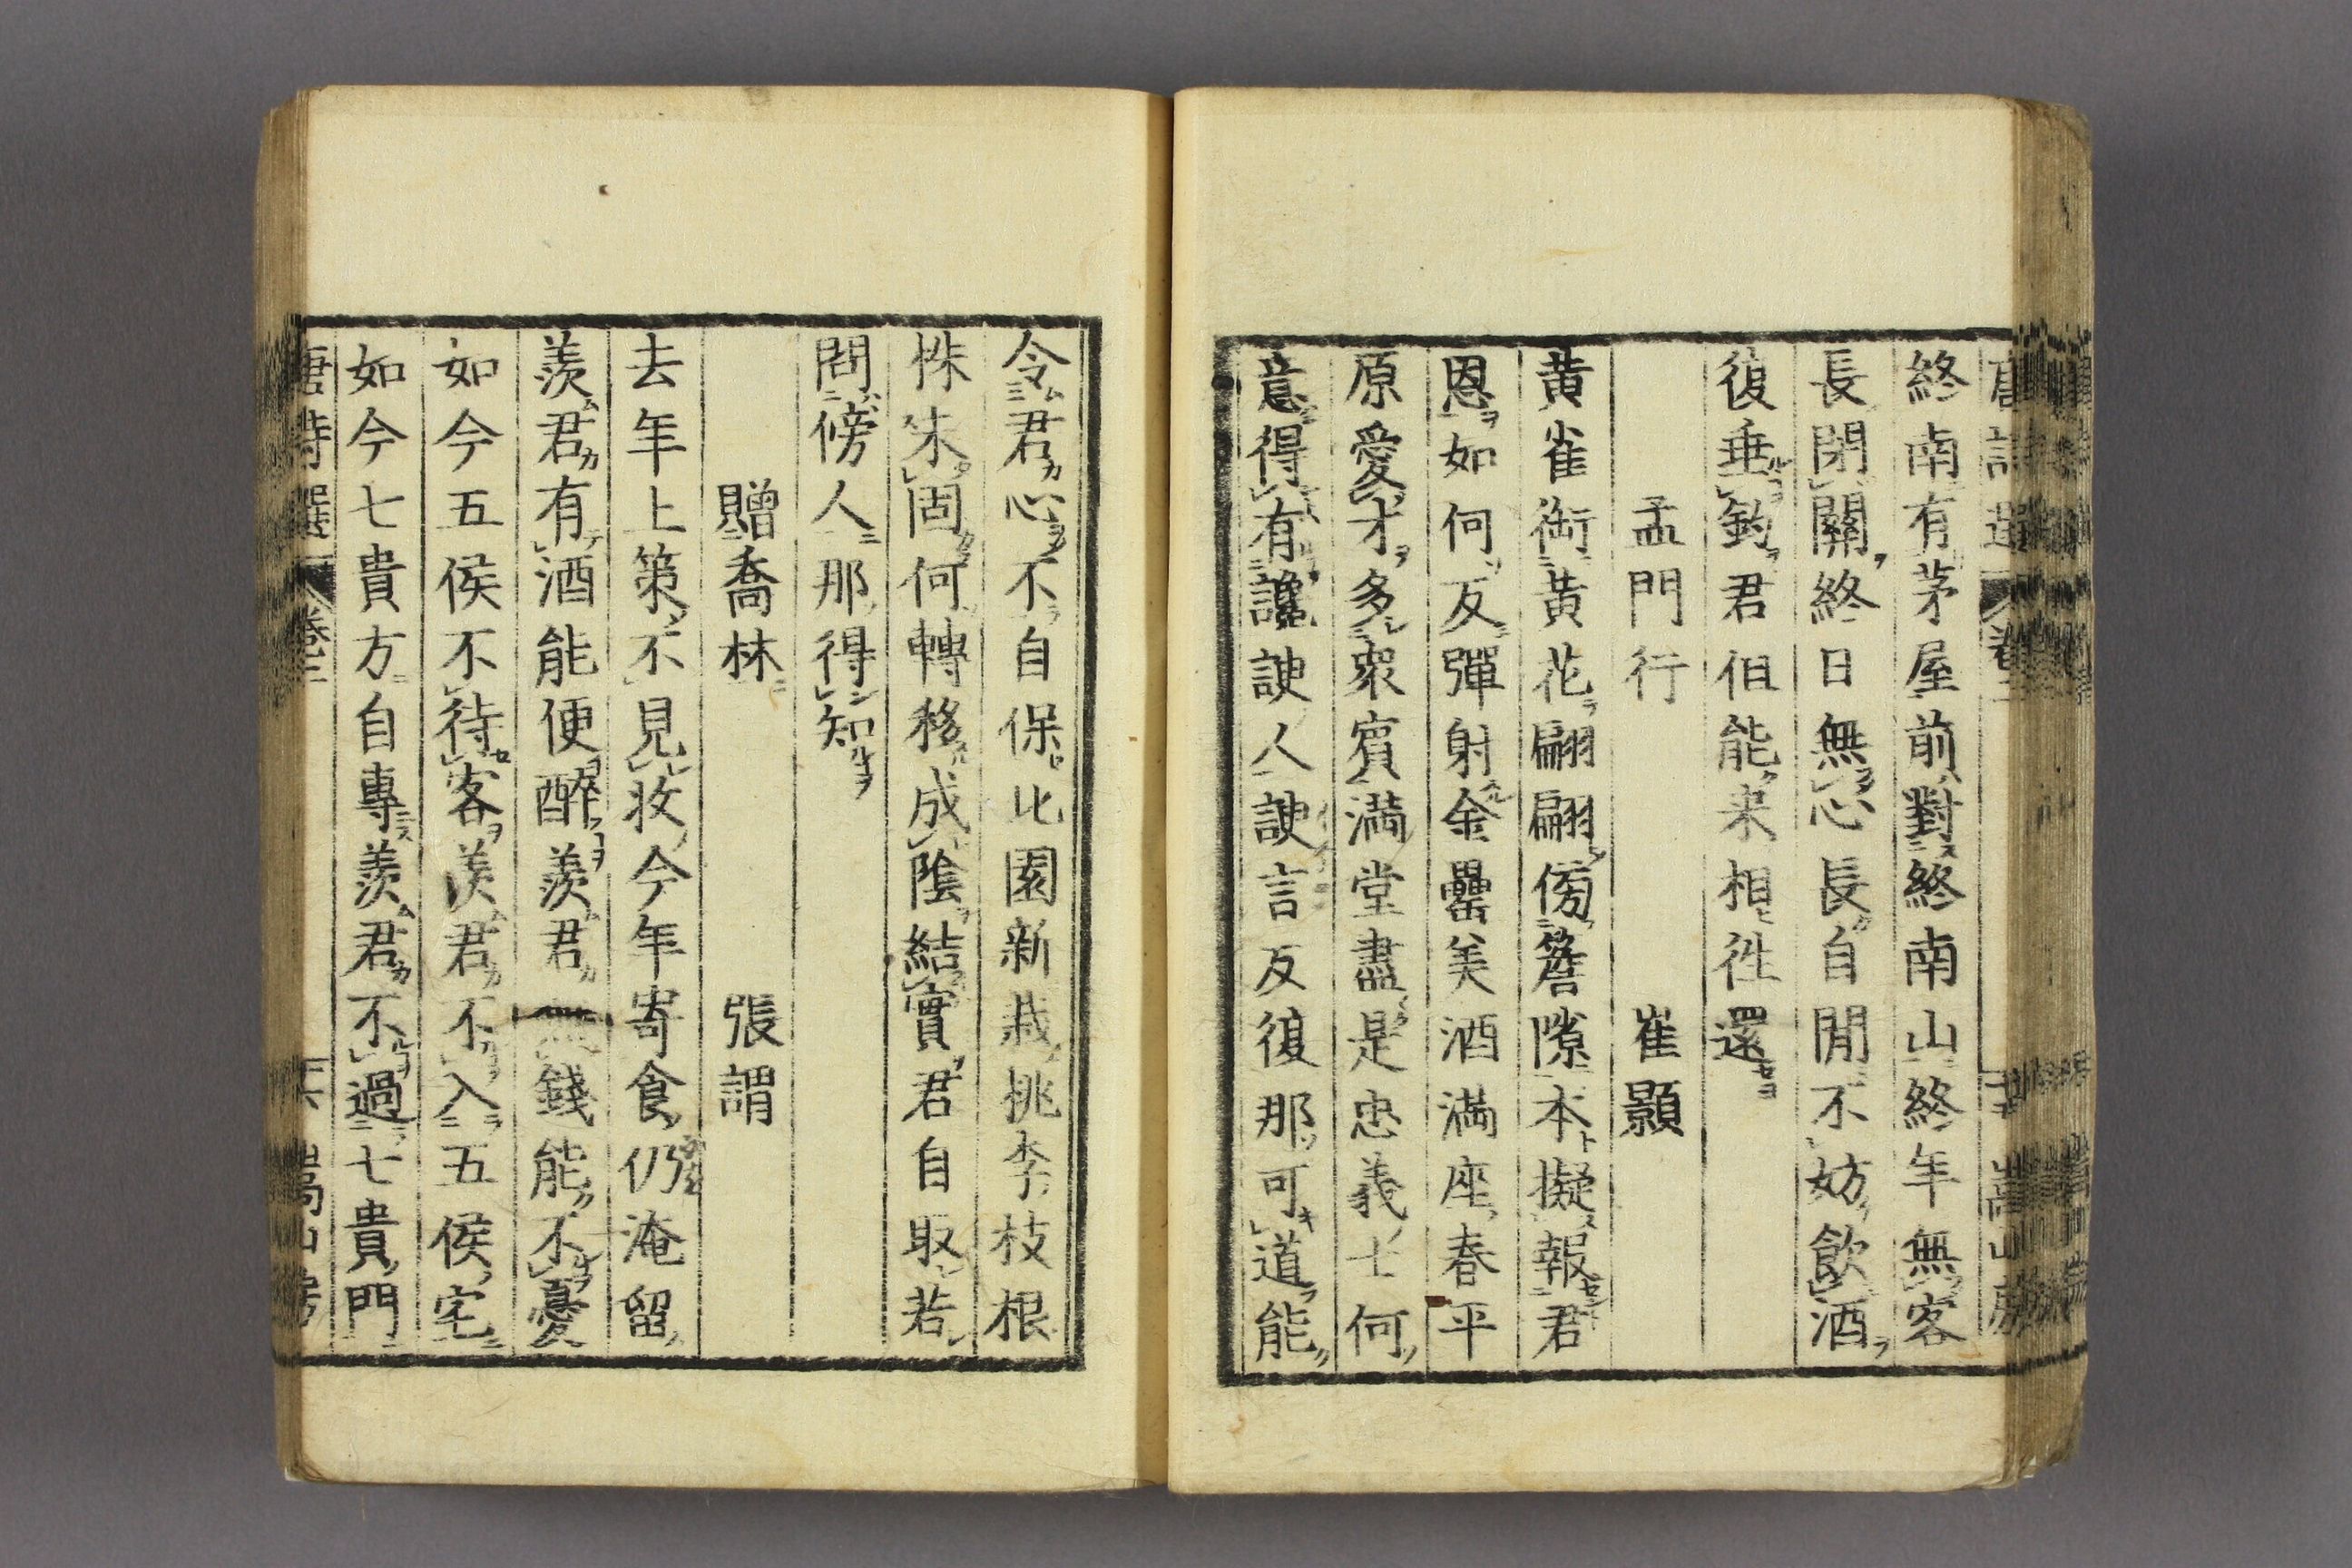 終南有茅屋前對終南山終年無客
長閉關終日無心長自閒不妨飲酒
復垂釣君但能来相往還
孟門行 崔顥
黄雀銜黄花翩翩傍簷隙本擬報君
恩如何反彈射金罍美酒満座春平
原愛才多衆賓満堂盡是忠義士何
意得有讒諛人諛言反復那可道能
令君心不自保比園新栽桃李枝根
株未固何轉移成陰結實君自取若
問傍人那得知
贈喬林 張謂
去年上策不見收今年寄食仍淹留
羨君有酒能便醉羨君無錢能不憂
如今五侯不待客羨君不入五侯宅
如今七貴方自專羨君不過七貴門
唐詩選 卷二 嵩山房